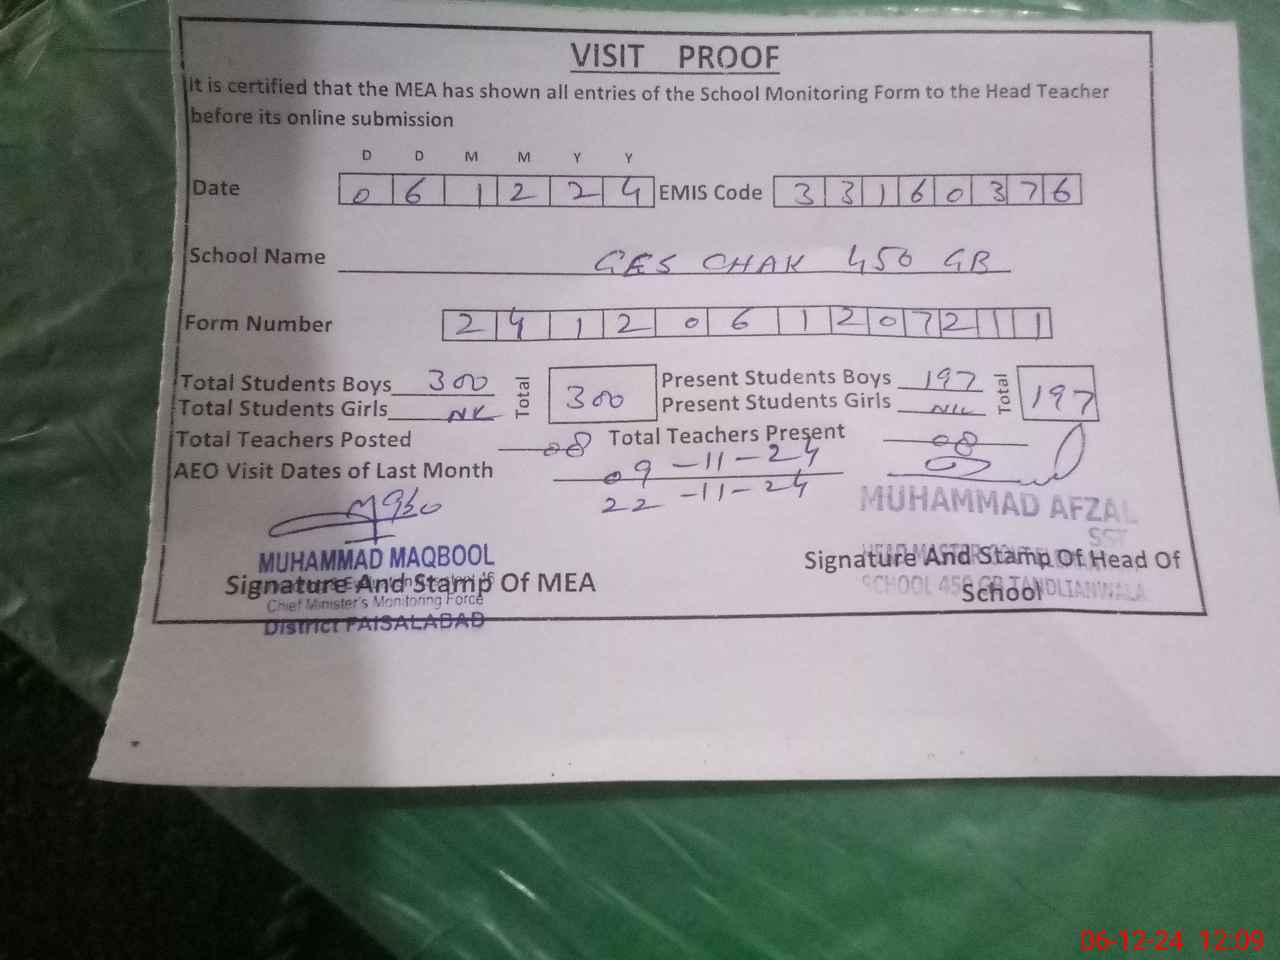 VISIT PROOF
It is certified that the MEA has shown all entries of the School Monitoring Form to the Head Teacher
before its online submission
D D M M Y Y
Date 0 6 1 2 2 4 EMIS Code 3 3 1 6 0 3 7 6
School Name GES CHAK 450 GB
Form Number 2 4 1 2 0 6 1 2 0 7 2 1 1
Total Students Boys 300 Total 300 Present Students Boys 197 Total 197
Total Students Girls NIL Present Students Girls NIL
Total Teachers Posted 08 Total Teachers Present 08
AEO Visit Dates of Last Month 09-11-24
22-11-24
MUHAMMAD AFZAL
SST
MUHAMMAD MAQBOOL
Signature And Stamp Of MEA
Chief Minister's Monitoring Force
District FAISALABAD
Signature And Stamp Of Head Of
School
HEAD MASTER
SCHOOL 450 GB TANDLIANWALA
06-12-24 12:09